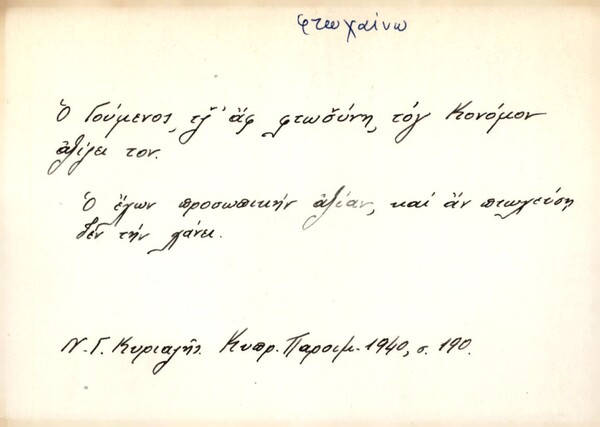 φτωχαίνω
Ὁ Γούμενος, τζ̌' ἄφ φτωσ̌ύνη, τὸγ Κονόμον
ἀξίζει τον.
Ὁ ἔχων προσωπικὴν ἀξίαν, καὶ ἂν πτωχεύσῃ
δὲν τὴν χάνει.
Ν. Γ. Κυριαζῆς. Κυπρ. Παροιμ. 1940, σ. 190.